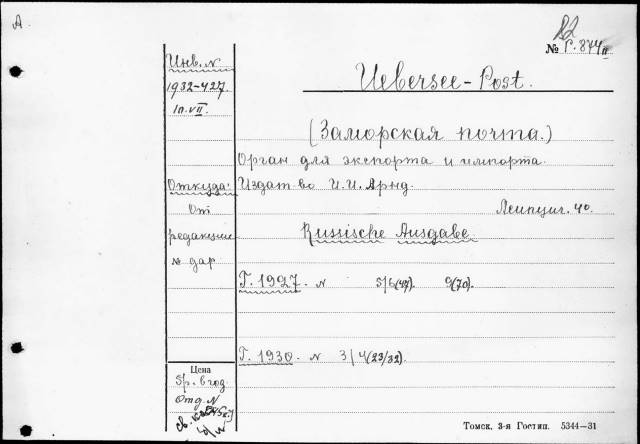 А.
82
№ Г. 874 II
Инв. N
1932-427
1п. VII
Uebersee-Post.
(Заморская почта.)
Орган для экспорта и импорта.
Откуда:
Издат-во И.И. Арнд.
От
Лейпциг. 40.
редакции
Russische Ausgabe.
№ дар
Г. 1927. N 5/6(47). 9(70).
Г. 1930. N 3/4(23/32).
Цена
5р. в год
Отд. N
Томск. 3-я Гостип. 5344—31